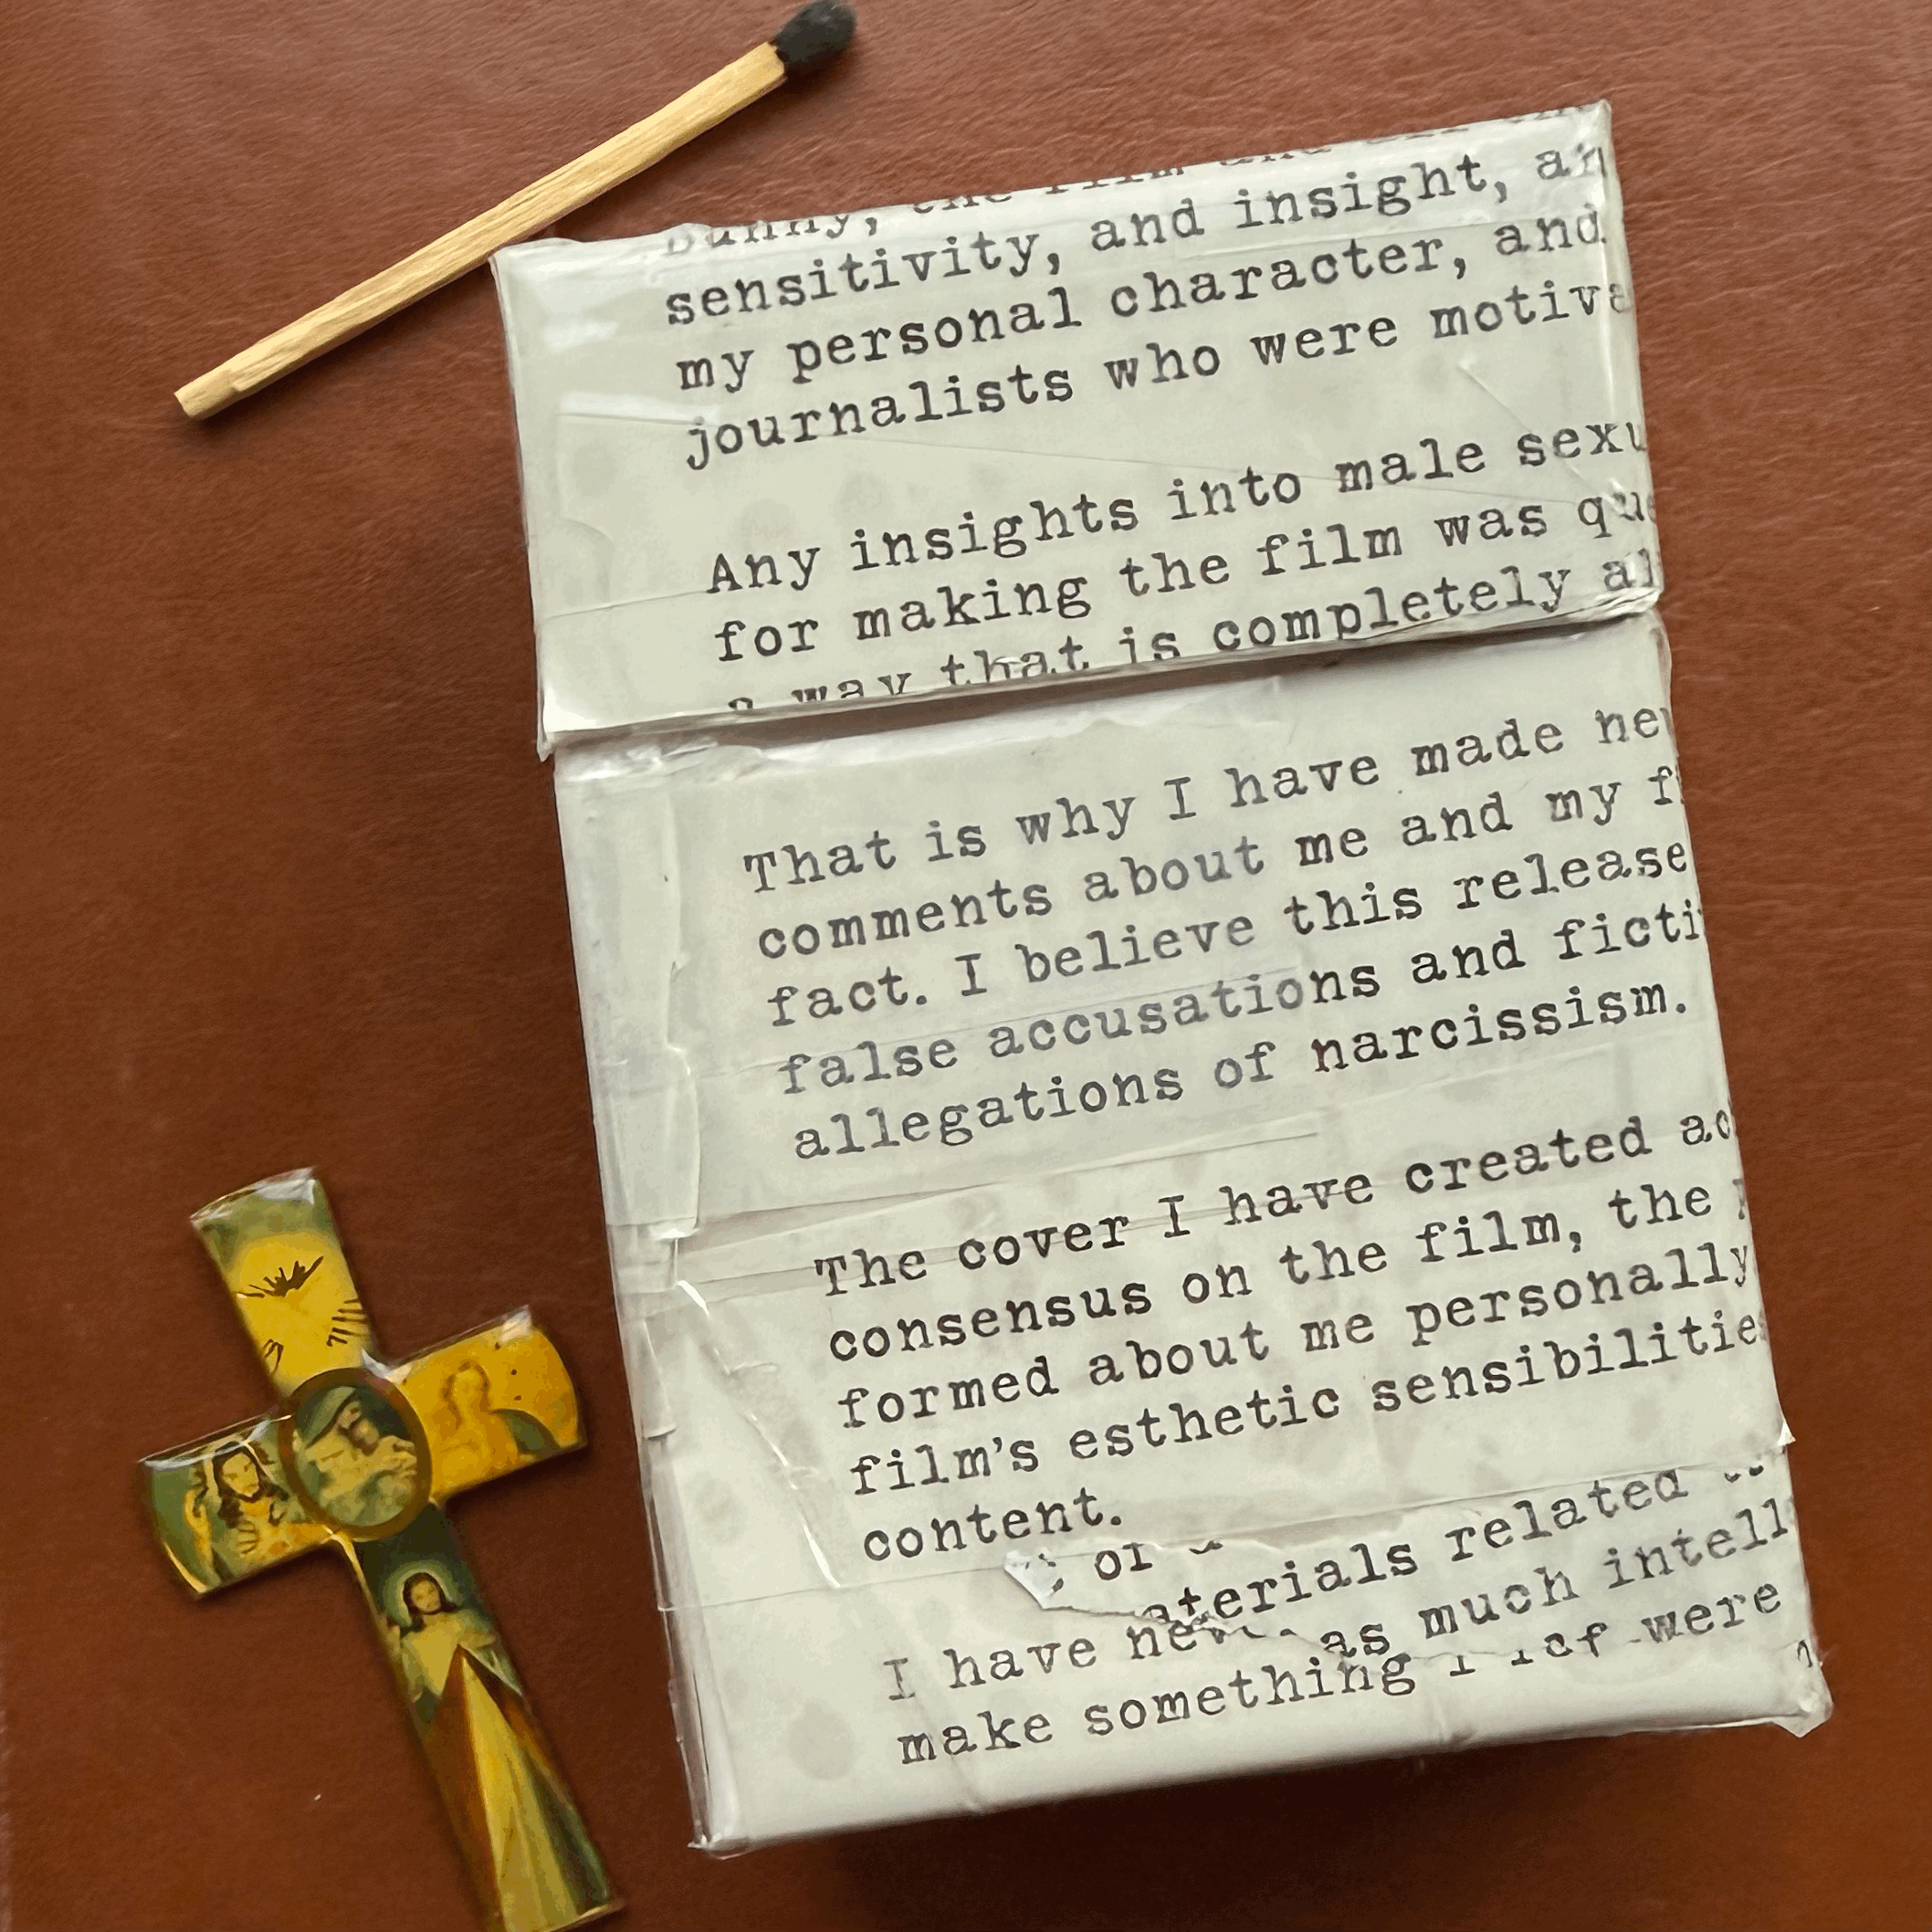 sensitivity, and insight, an
my personal character, and
journalists who were motiva
Any insights into male sexu
for making the film was que
a way that is completely al
That is why I have made ne
comments about me and my f
fact. I believe this release
false accusations and ficti
allegations of narcissism.
The cover I have created ac
consensus on the film, the
formed about me personally
film's esthetic sensibilitie
content.
aterials related
I have
as much intell
make something
were